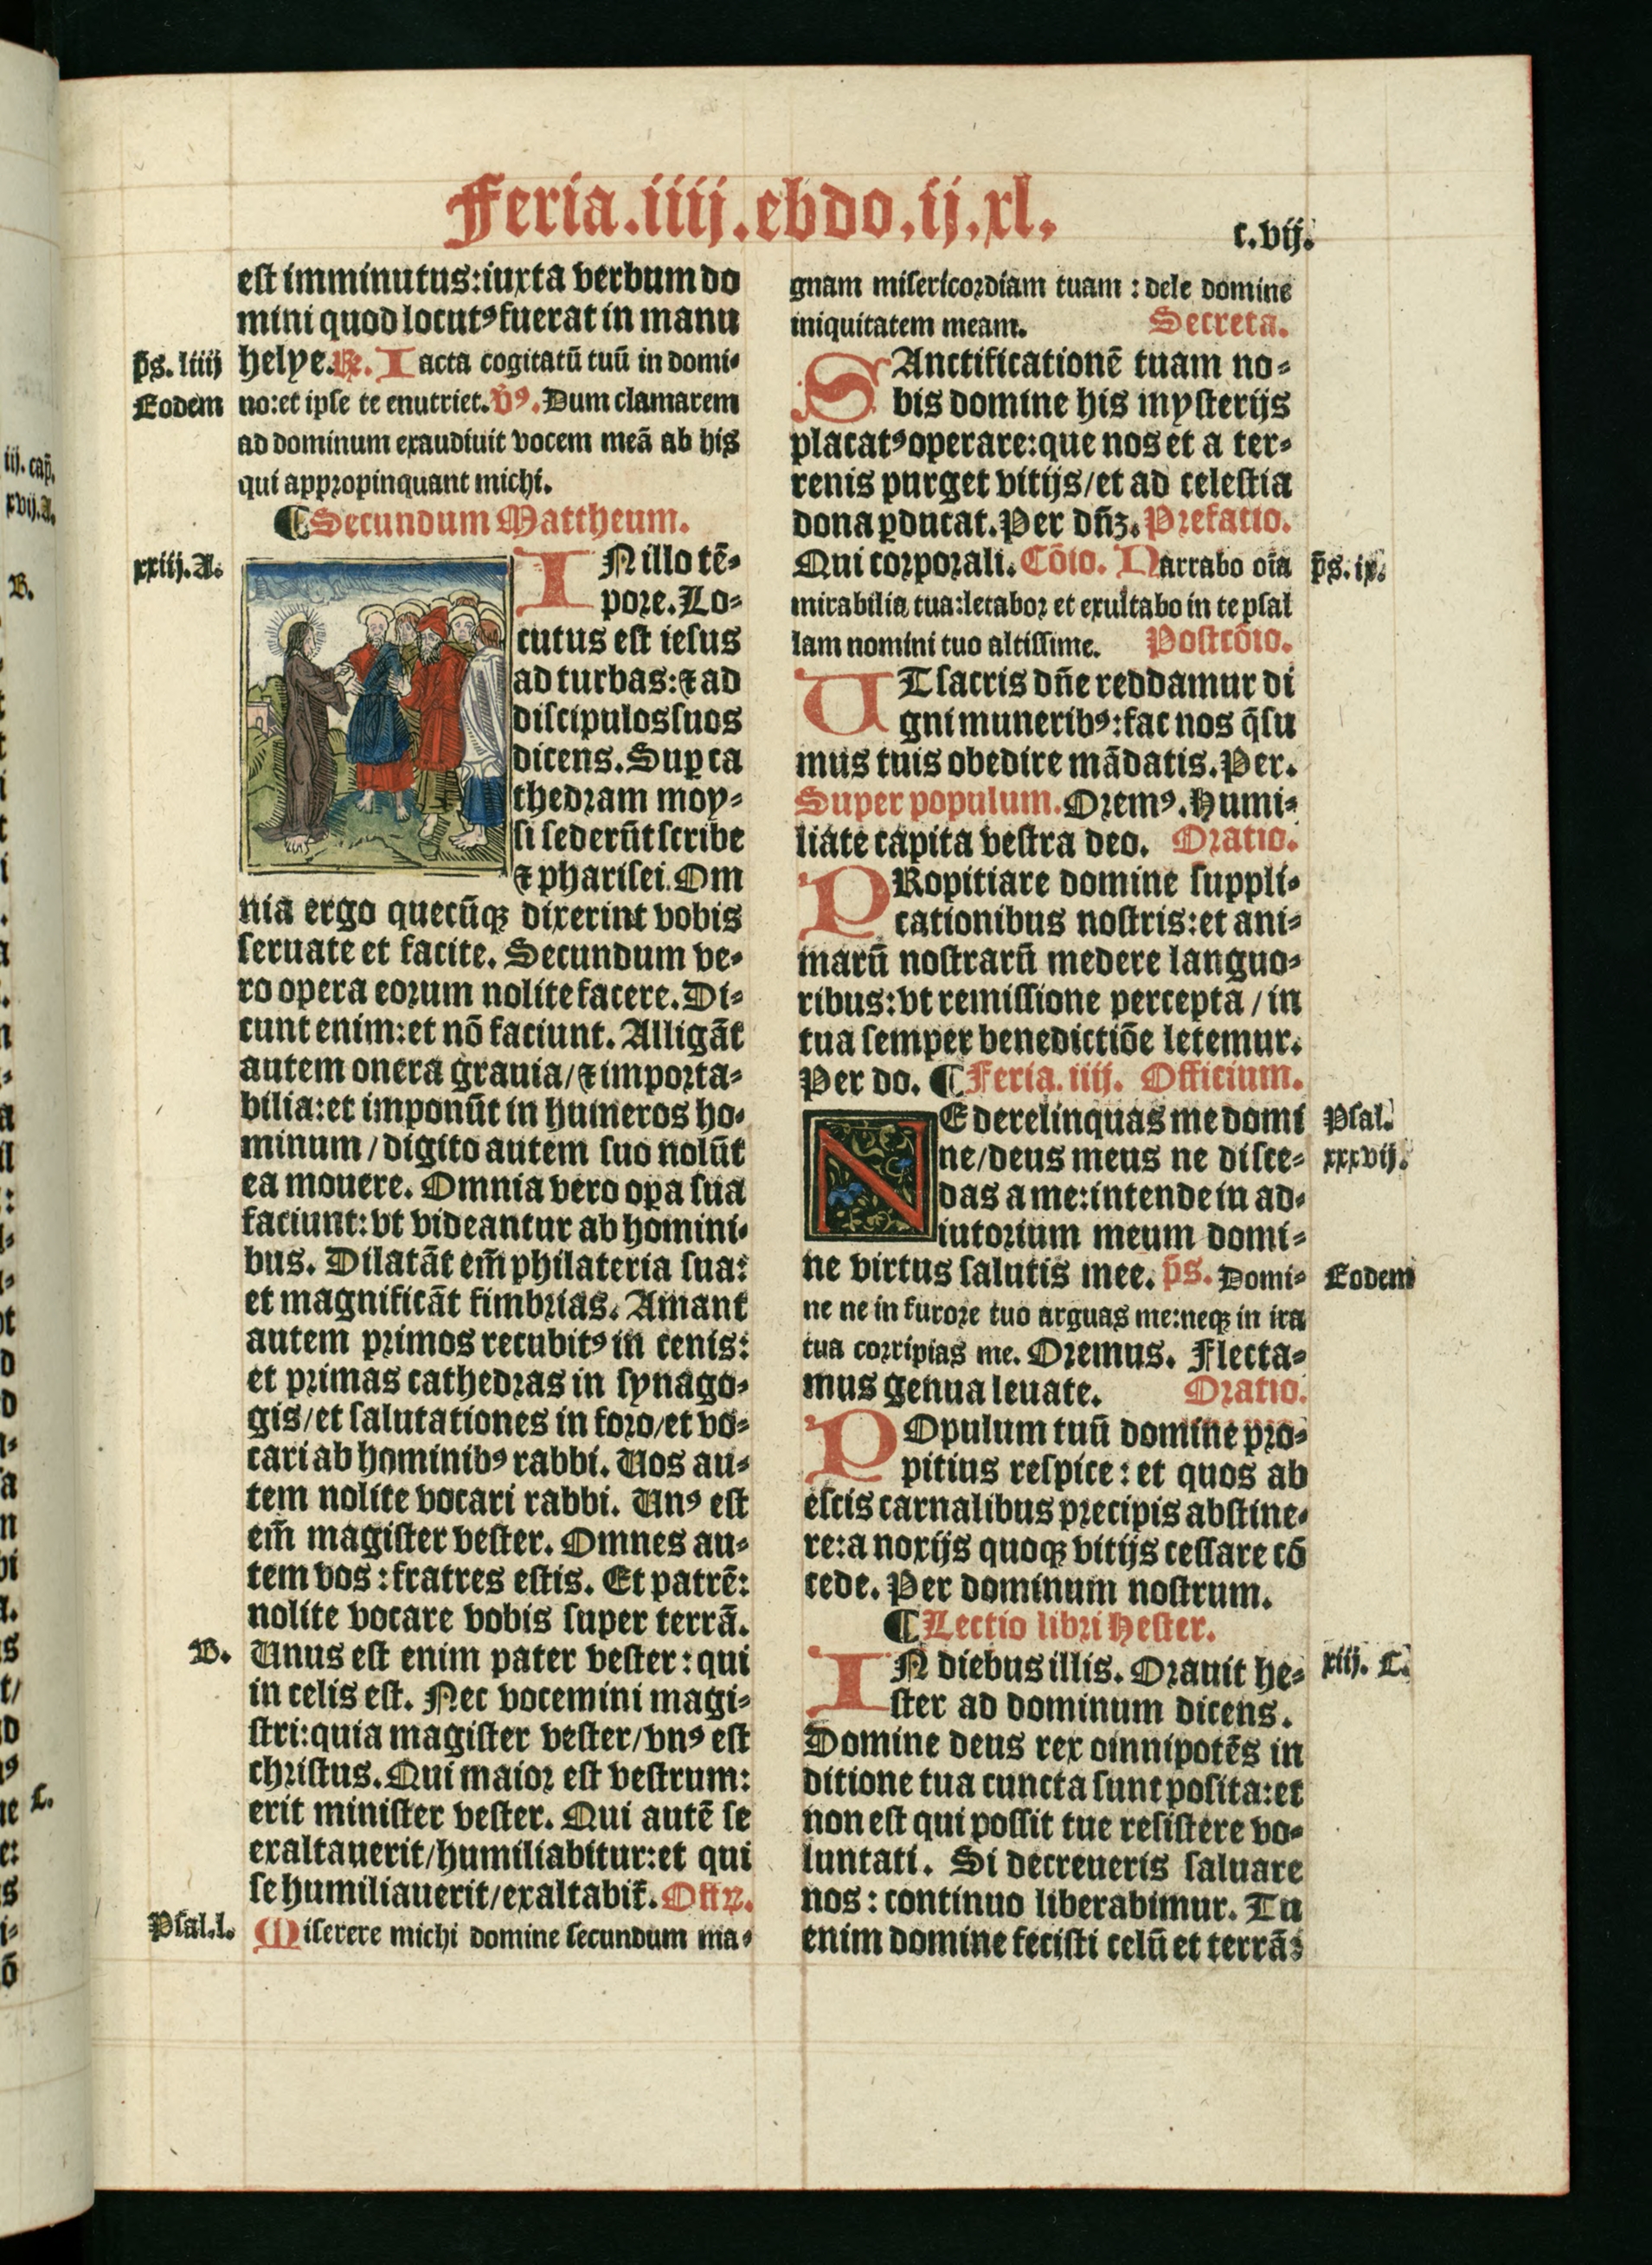 Feria.iiij.ebdo.ij.xl.
c.vij.
est imminutus:iuxta verbum do
mini quod locutꝰ fuerat in manu
p̄s. liiij
helye. ℟. Iacta cogitatū tuū in domi⸗
Eodem
no:et ipse te enutriet. v̄ꝰ. Dum clamarem
ad dominum exaudiuit vocem meā ab his
qui appropinquant michi.
¶ Secundum Mattheum.
xxiij. A.
IN illo tē⸗
pore. Lo⸗
cutus est iesus
ad turbas: ⁊ ad
discipulos suos
dicens. Suꝑ ca
thedram moy⸗
si sederūt scribe
⁊ pharisei. Om
nia ergo quecūqꝫ dixerint vobis
seruate et facite. Secundum ve⸗
ro opera eorum nolite facere. Di⸗
cunt enim:et nō faciunt. Alligāt
autem onera grauia/⁊ importa⸗
bilia:et imponūt in humeros ho⸗
minum/digito autem suo nolūt
ea mouere. Omnia vero oꝑa sua
faciunt:vt videantur ab homini⸗
bus. Dilatāt em̄ philateria sua:
et magnificāt fimbrias. Amant
autem primos recubitꝰ in cenis:
et primas cathedras in synago⸗
gis/et salutationes in foro/et vo⸗
cari ab hominibꝰ rabbi. Uos au⸗
tem nolite vocari rabbi. Unꝰ est
em̄ magister vester. Omnes au⸗
tem vos:fratres estis. Et patrē:
nolite vocare vobis super terrā.
B.
Unus est enim pater vester:qui
in celis est. Nec vocemini magi⸗
stri:quia magister vester/vnꝰ est
christus. Qui maior est vestrum:
erit minister vester. Qui autē se
exaltauerit/humiliabitur:et qui
se humiliauerit/exaltabit̄. Offꝝ.
Psal.l.
Miserere michi domine secundum ma⸗
gnam misericordiam tuam : dele domine
iniquitatem meam. Secreta.
SAnctificationē tuam no⸗
bis domine his mysterijs
placatꝰ operare:que nos et a ter⸗
renis purget vitijs/et ad celestia
dona ꝓducat. Per dn̄ꝫ. Prefatio.
Qui corporali. Cōio. Narrabo oīa
p̄s. ix.
mirabilia tua:letabor et exultabo in te psal
lam nomini tuo altissime. Postcōio.
UT sacris dn̄e reddamur di
gni muneribꝰ:fac nos q̄su
mus tuis obedire mādatis. Per.
Super populum. Oremꝰ. Humi⸗
liate capita vestra deo. Oratio.
PRopitiare domine suppli⸗
cationibus nostris:et ani⸗
marū nostrarū medere languo⸗
ribus:vt remissione percepta/in
tua semper benedictiōe letemur.
Per do. ¶ Feria. iiij. Officium.
NE derelinquas me domi
Psal.
ne/deus meus ne disce⸗
xxxvij.
das a me:intende in ad⸗
iutorium meum domi⸗
ne virtus salutis mee. p̄s. Domi⸗
Eodem
ne ne in furore tuo arguas me:neqꝫ in ira
tua corripias me. Oremus. Flecta⸗
mus genua leuate. Oratio.
POpulum tuū domine pro⸗
pitius respice:et quos ab
escis carnalibus precipis abstine⸗
re:a noxijs quoqꝫ vitijs cessare cō
cede. Per dominum nostrum.
¶ Lectio libri Hester.
IN diebus illis. Orauit he⸗
xiij. C.
ster ad dominum dicens.
Domine deus rex omnipotēs in
ditione tua cuncta sunt posita:et
non est qui possit tue resistere vo⸗
luntati. Si decreueris saluare
nos:continuo liberabimur. Tu
enim domine fecisti celū et terrā:
iij. cap̄.
xvij.A.
B.
C.